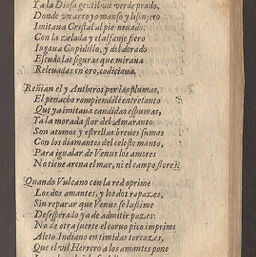 Y a la Diosa gentil vn verde prado,
Donde vn arroyo manso y lisonjero
Imitaua Cristal al pie neuado:
Con la zelada y el alfanje fiero
Iugaua Cupidillo, y del dorado
Escudo, las figuras que miraua
Releuadas en oro, codiciaua.
Reñian el y Antheros por las plumas,
El penacho rompiendole entretanto
Que ya imitaua candidas espumas,
Ya la morada flor del Amaranto:
Son atomos y estrellas breues sumas
Con los diamantes del celeste manto,
Para igualar de Venus los amores
No tiene arena el mar, ni el campo flores.
Quando Vulcano con la red oprime
Los dos amantes, y los dos rapazes,
Sin reparar que Venus se lastime
Desesperado ya de admitir pazes:
No de otra suerte el coruo pico imprime
Aleto Indiano en timidas torcazes,
Que el vil Herrero a los amantes pone